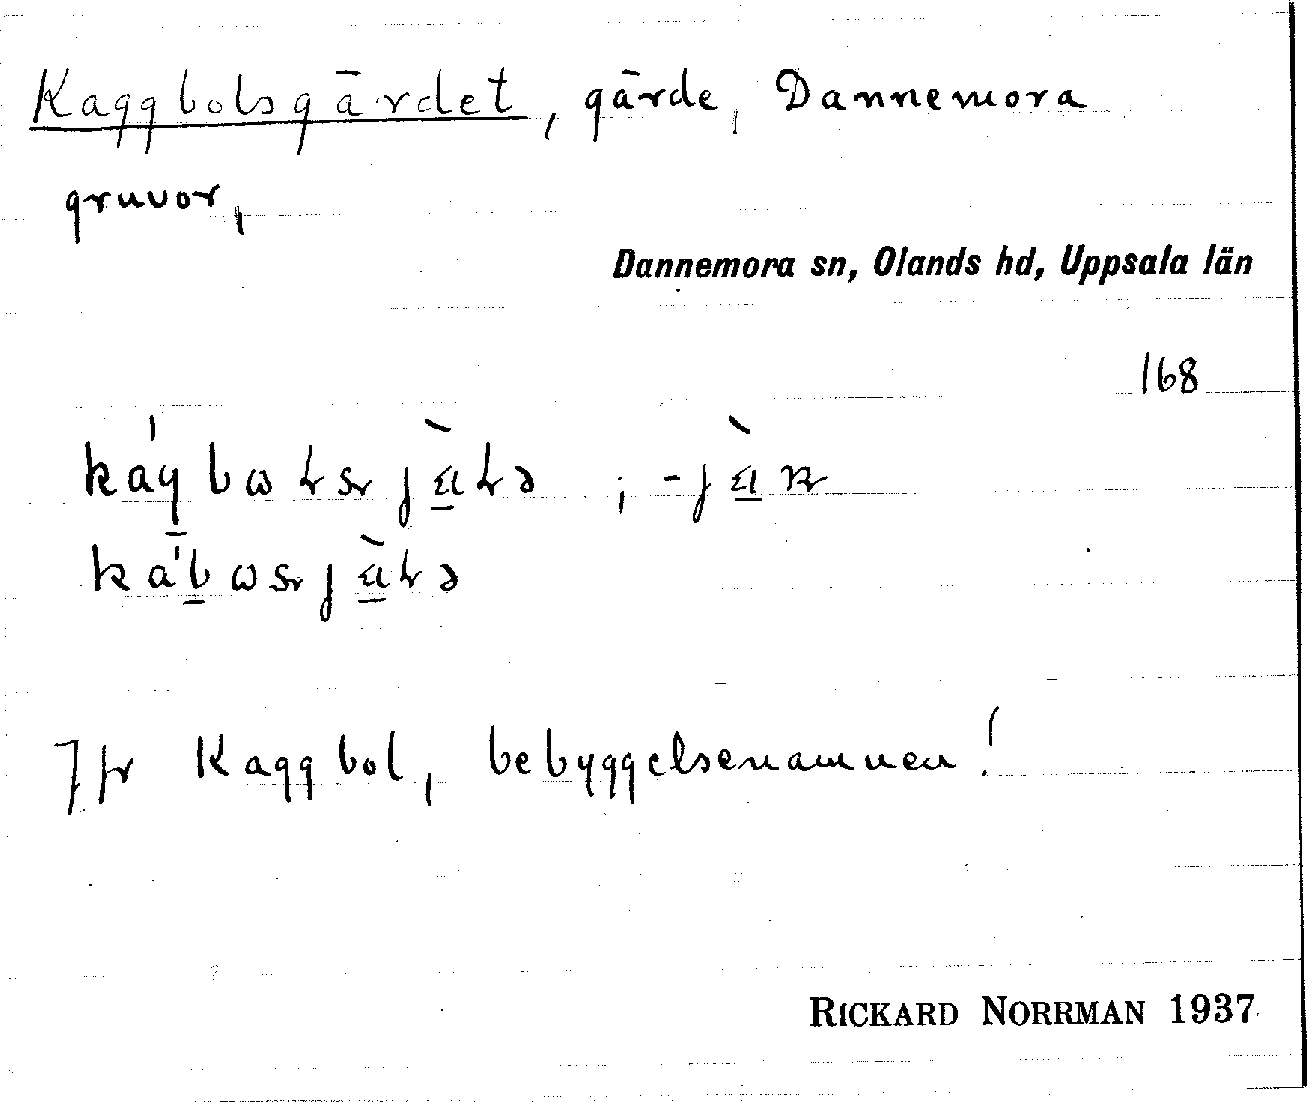 Kaggbolsgärdet, gärde, Dannemora
gruvor,
Dannemora sn, Olands hd, Uppsala län
168
Jfr Kaggbol, bebyggelsenamnen!
RICKARD NORRMAN 1937